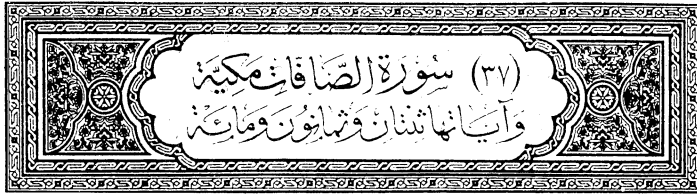 (٣٧) سُورَة الصَّافَات مَكِيَّة
وَآيَاتهَا ثنتَان وَثمَانونَ وَمَائَة